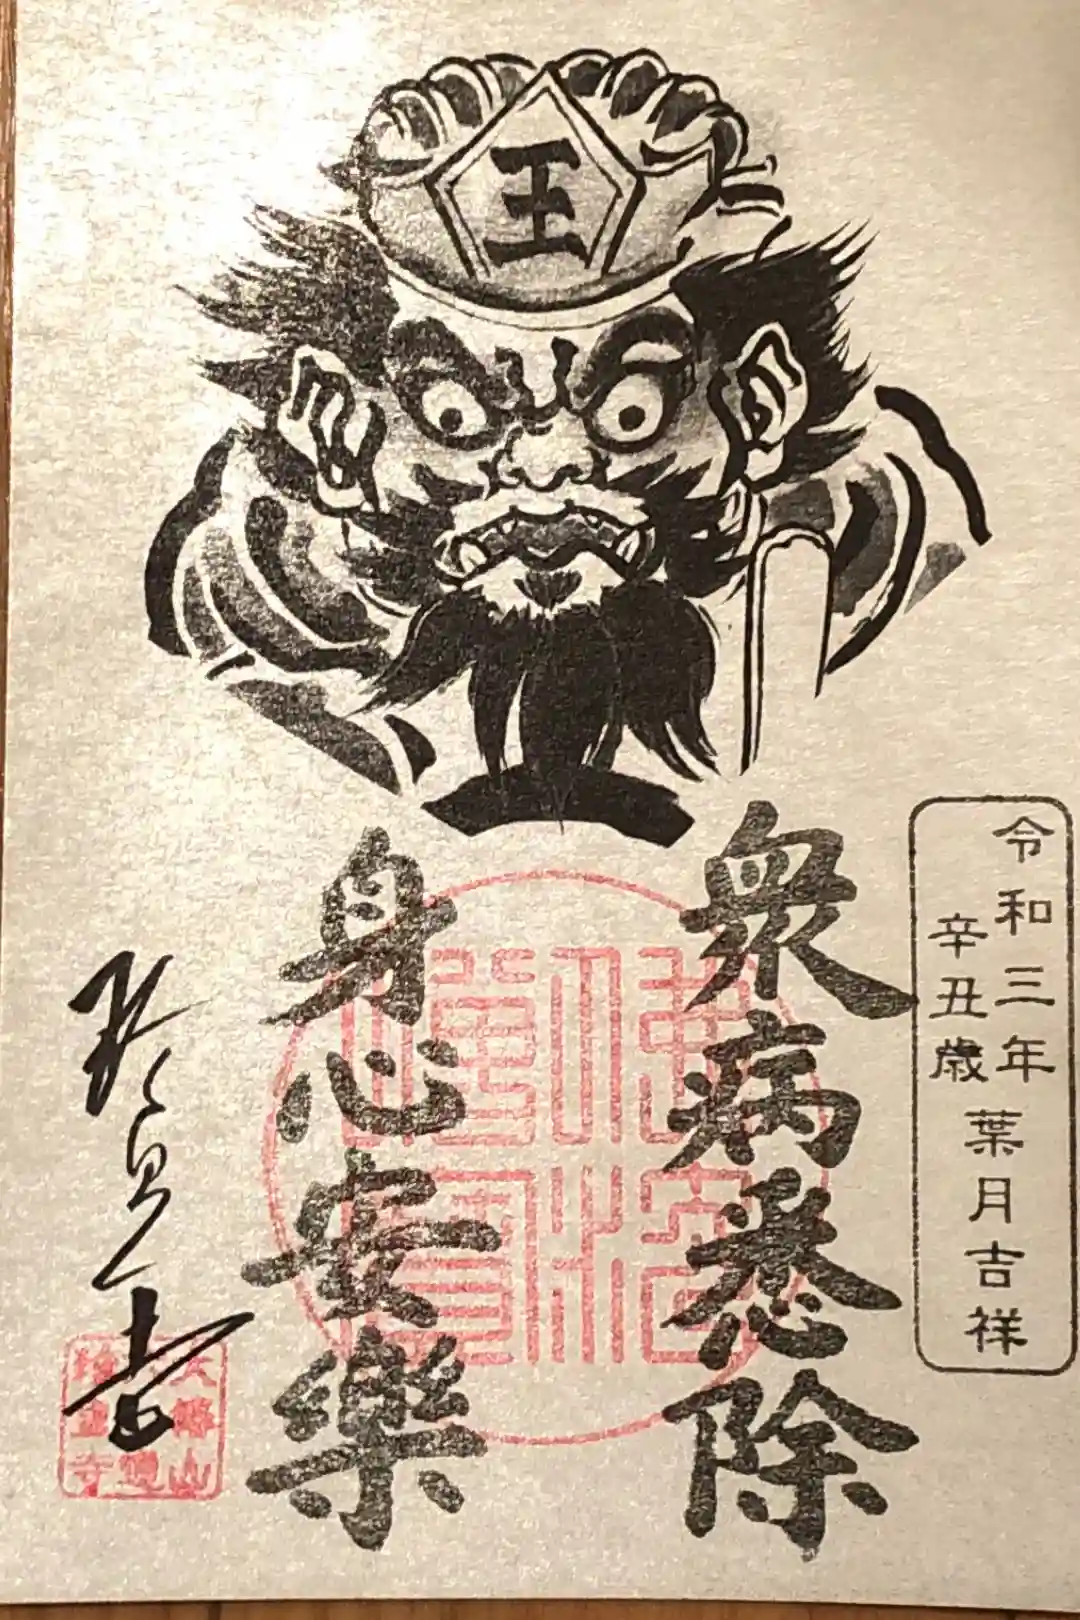 王
令和三年
辛丑歳
葉月吉祥
衆病悉除
身心安樂